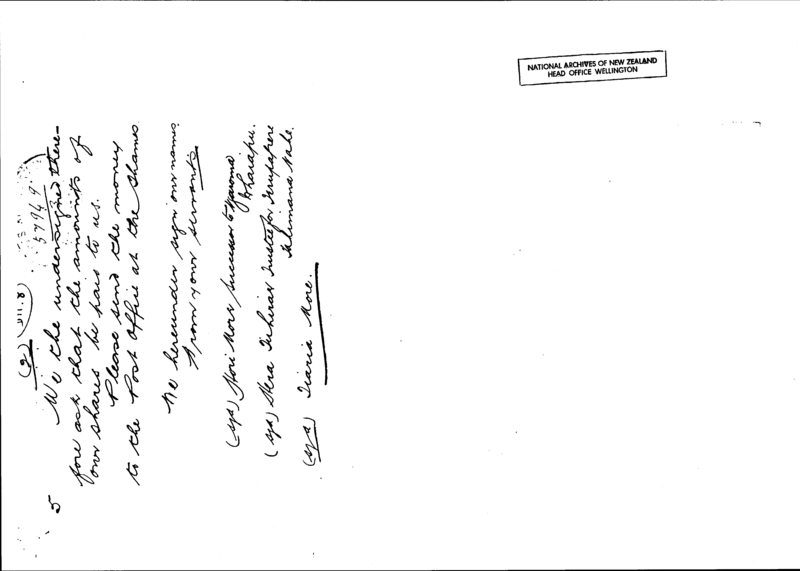 NATIONAL ARCHIVES OF NEW ZEALAND
HEAD OFFICE WELLINGTON
(2)
57949
5
We the undersigned there-
fore ask that the amounts of
our shares be paid to us.
Please send the money
to the Post Office at the Thames
We hereunder sign our names.
From your servants
(sgd) Hori More successor to
(sgd) Hera Trustee for
(sgd) Tiaria More.